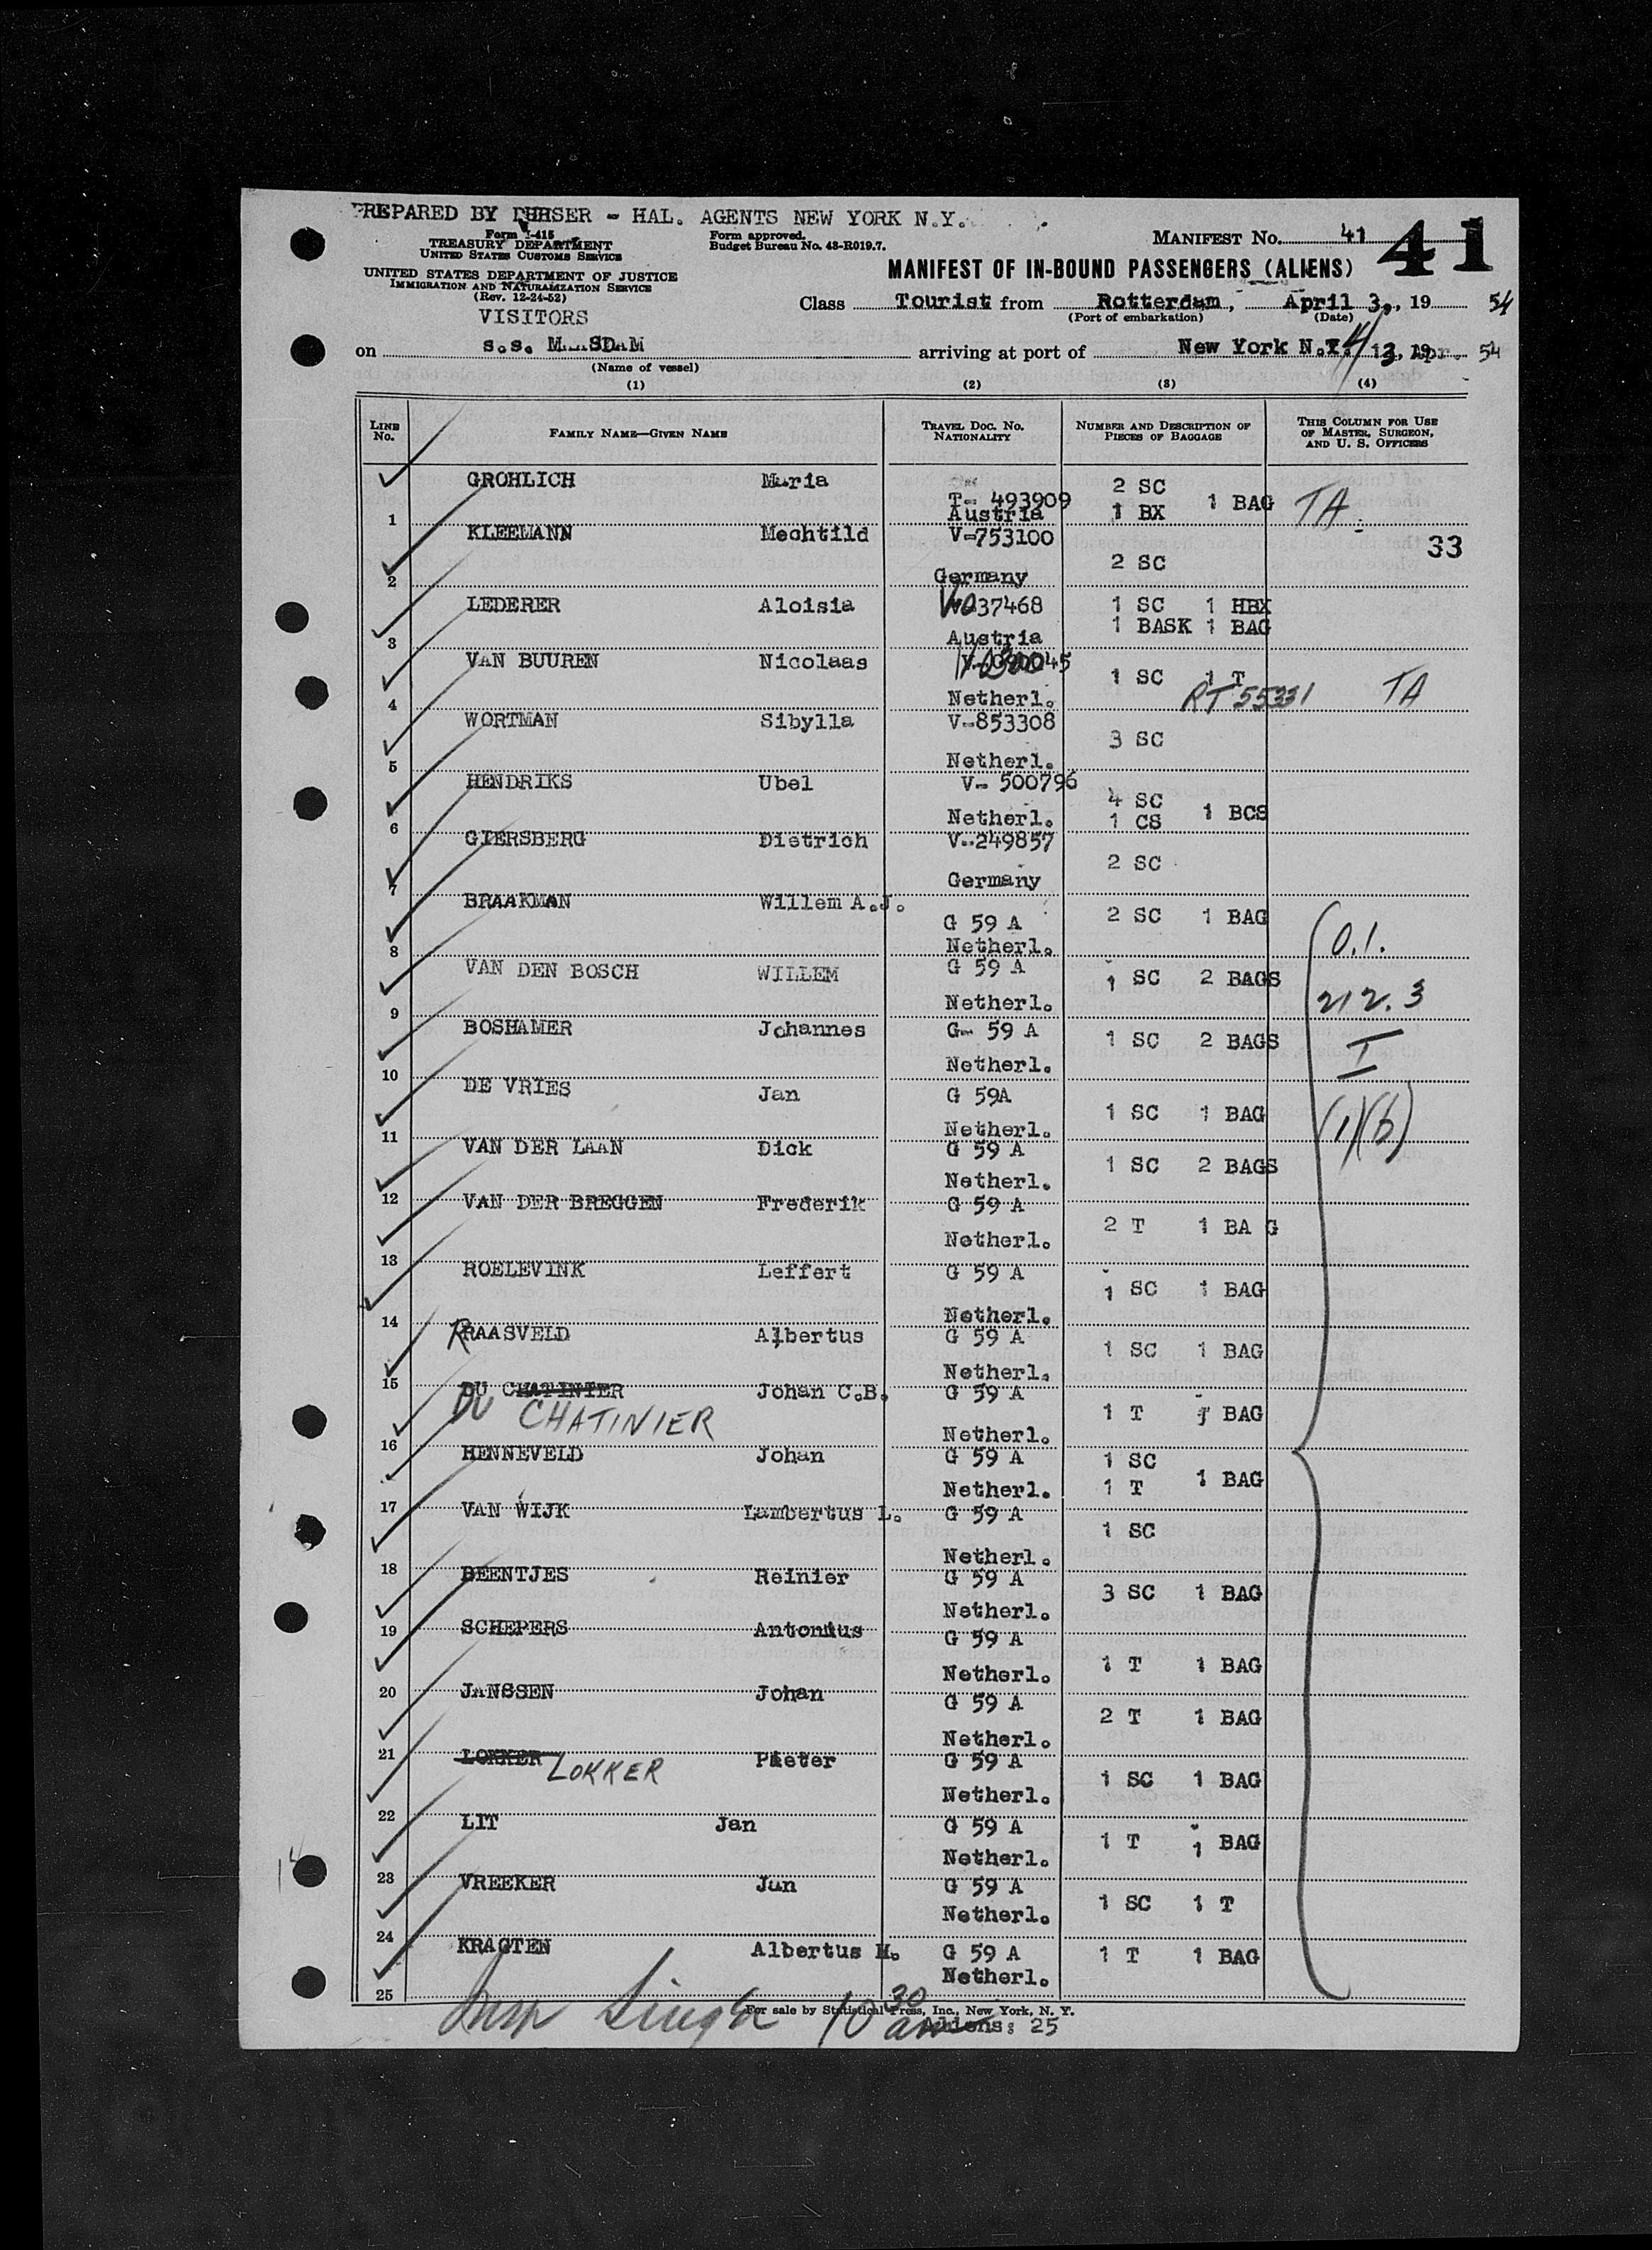 PREPARED BY PURSER - HAL. AGENTS NEW YORK N.Y.
Form I-415
TREASURY DEPARTMENT
UNITED STATES CUSTOMS SERVICE
UNITED STATES DEPARTMENT OF JUSTICE
IMMIGRATION AND NATURALIZATION SERVICE
(Rev. 12-24-52)
VISITORS
Form approved.
Budget Bureau No. 43-R019.7.
MANIFEST NO. 41 41
MANIFEST OF IN-BOUND PASSENGERS (ALIENS)
Class Tourist from Rotterdam, April 3, 19 54
(Port of embarkation) (Date)
on s.s. MAASDAM arriving at port of New York N.Y. 4/13, 19 54
(Name of vessel)
(1) (2) (3) (4)
LINE NO. FAMILY NAME—GIVEN NAME TRAVEL DOC. NO. NATIONALITY NUMBER AND DESCRIPTION OF PIECES OF BAGGAGE THIS COLUMN FOR USE OF MASTER, SURGEON, AND U. S. OFFICERS
1 GROHLICH Maria T- 493909 Austria 2 SC 1 BX 1 BAG TA
33
2 KLEEMANN Mechtild V-753100 Germany 2 SC
3 LEDERER Aloisia V-037468 Austria 1 SC 1 HBX 1 BASK 1 BAG
4 VAN BUUREN Nicolaas Netherl. 1 SC 1 T RT 55331 TA
5 WORTMAN Sibylla V-853308 Netherl. 3 SC
6 HENDRIKS Ubel V- 500796 Netherl. 4 SC 1 CS 1 BCS
7 GIERSBERG Dietrich V-249857 Germany 2 SC
8 BRAAKMAN Willem A.J. G 59 A Netherl. 2 SC 1 BAG O.1.
9 VAN DEN BOSCH WILLEM G 59 A Netherl. 1 SC 2 BAGS 212.3
10 BOSHAMER Johannes G- 59 A Netherl. 1 SC 2 BAGS I
11 DE VRIES Jan G 59A Netherl. 1 SC 1 BAG (1)(b)
12 VAN DER LAAN Dick G 59 A Netherl. 1 SC 2 BAGS
13 VAN DER BREGGEN Frederik G 59 A Netherl. 2 T 1 BA G
14 ROELEVINK Leffert G 59 A Netherl. 1 SC 1 BAG
15 RAASVELD Albertus G 59 A Netherl. 1 SC 1 BAG
16 DU CHATINIER Johan C.B. G 59 A Netherl. 1 T 1 BAG
DU CHATINIER
17 HENNEVELD Johan G 59 A Netherl. 1 SC 1 T 1 BAG
18 VAN WIJK Lambertus L. G 59 A Netherl. 1 SC
19 BEENTJES Reinier G 59 A Netherl. 3 SC 1 BAG
20 SCHEPERS Antonius G 59 A Netherl. 1 T 1 BAG
21 JANSSEN Johan G 59 A Netherl. 2 T 1 BAG
22 LOKKER Pieter G 59 A Netherl. 1 SC 1 BAG
23 LIT Jan G 59 A Netherl. 1 T 1 BAG
24 VREEKER Jan G 59 A Netherl. 1 SC 1 T
25 KRAGTEN Albertus H. G 59 A Netherl. 1 T 1 BAG
For sale by Statistical Press, Inc., New York, N. Y.
Insp 10 30 am
Aliens: 25